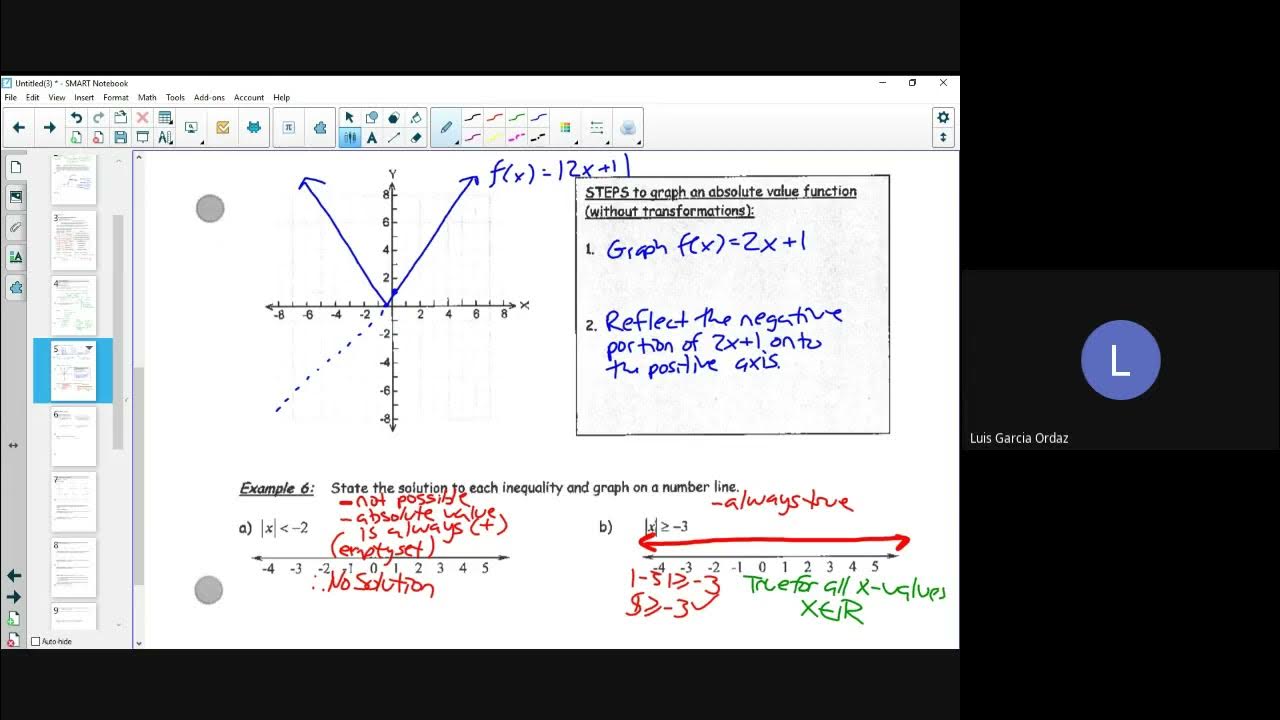 Untitled(3) * - SMART Notebook
File Edit View Insert Format Math Tools Add-ons Account Help
f(x) = |2x+1|
Y
8
6
4
2
-8 -6 -4 -2 2 4 6 8 X
-2
-4
-6
-8
STEPS to graph an absolute value function
(without transformations):
1. Graph f(x)=2x+1
2. Reflect the negative
portion of 2x+1 onto
the positive axis.
Example 6: State the solution to each inequality and graph on a number line.
- not possible
- absolute value
is always (+)
(empty set)
a) |x| < -2
-4 -3 -2 -1 0 1 2 3 4 5
∴ No Solution
- always true
b) |x| ≥ -3
-4 -3 -2 -1 0 1 2 3 4 5
|-5| ≥ -3
5 ≥ -3 ✓
True for all x-values
X∈R
3
4
5
6
7
8
9
Auto-hide
L
Luis Garcia Ordaz